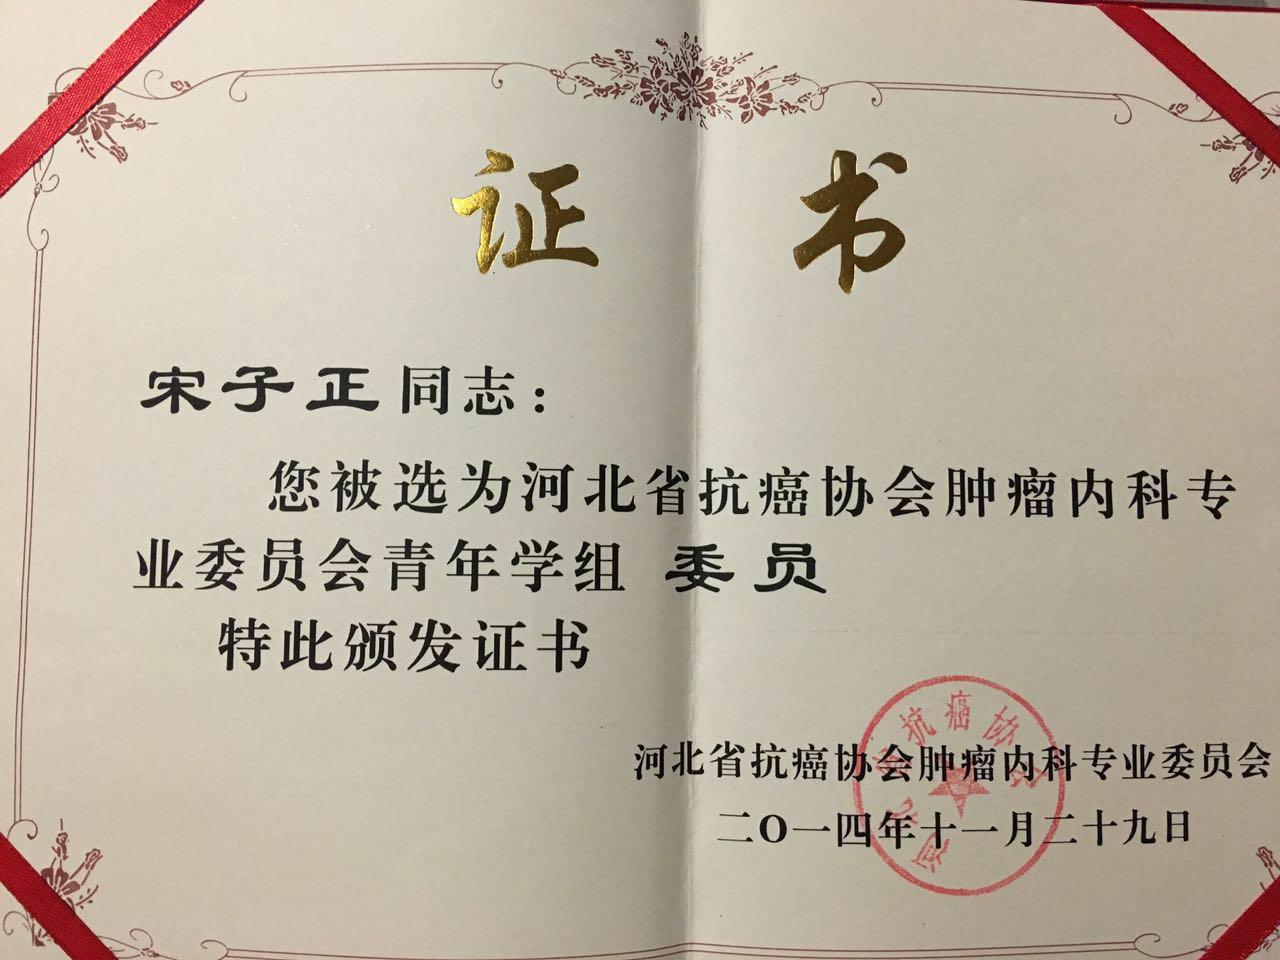 证 书
宋子正同志：
您被选为河北省抗癌协会肿瘤内科专
业委员会青年学组 委员
特此颁发证书
河北省抗癌协会肿瘤内科专业委员会
二〇一四年十一月二十九日
河北省抗癌协会